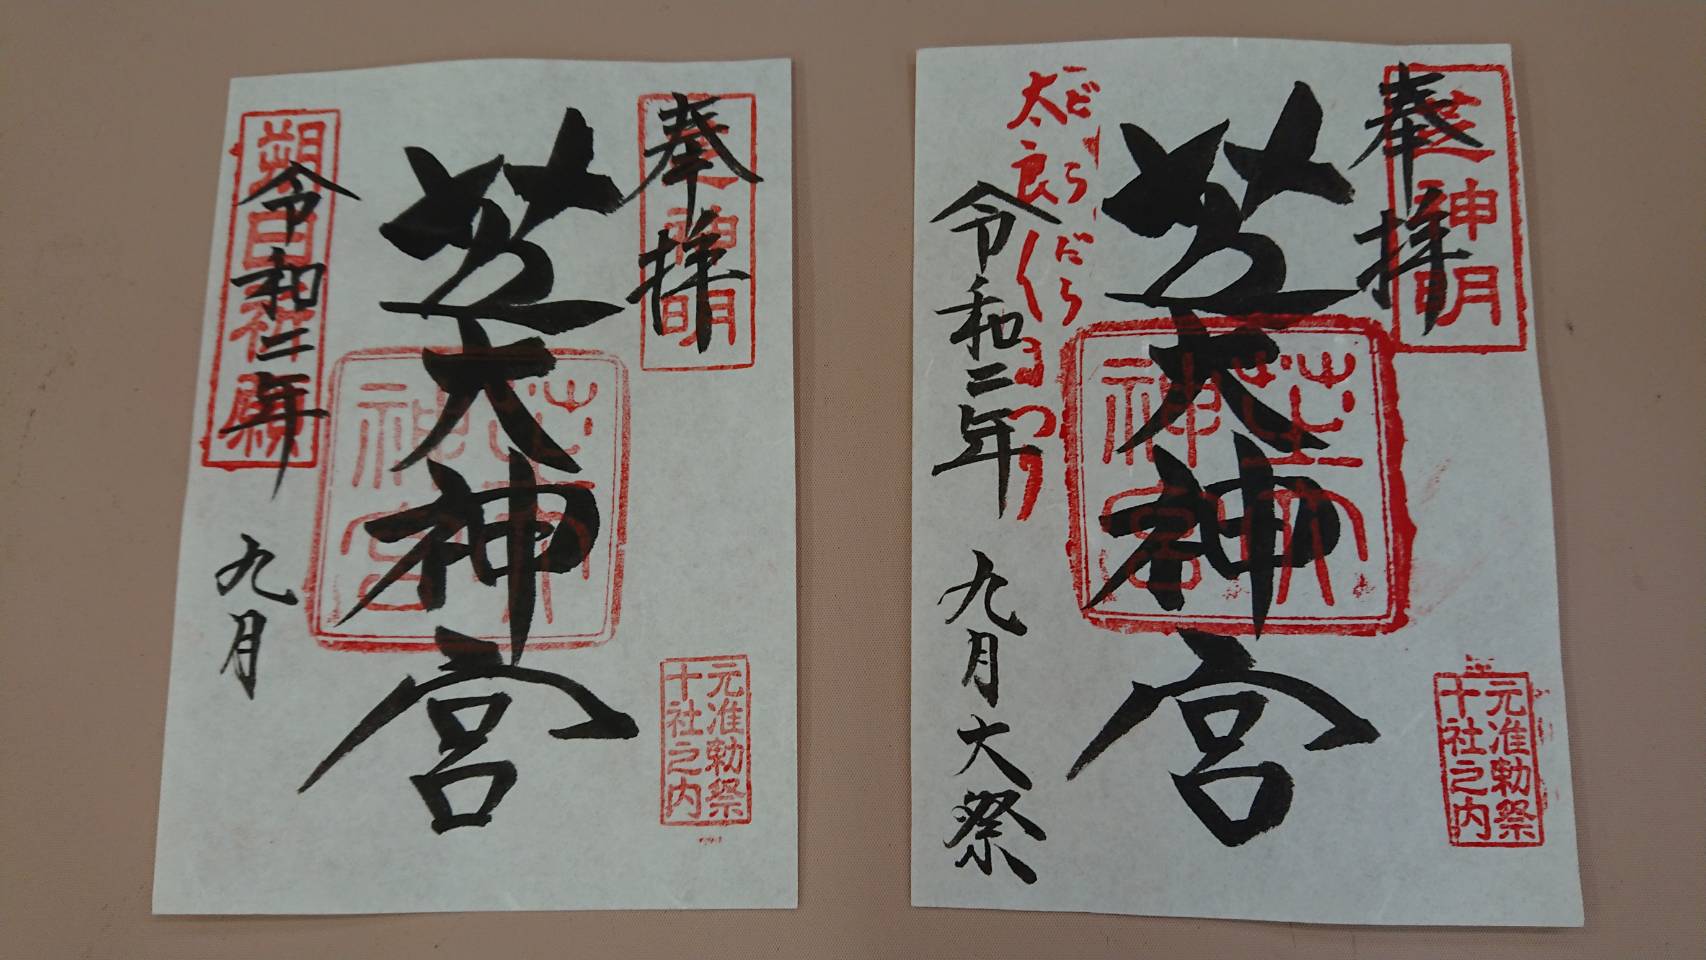 奉拝
芝神明
芝大神宮
芝大神宮
元准勅祭
十社之内
朔日祈願
令和二年 九月
奉拝
芝神明
芝大神宮
芝大神宮
元准勅祭
十社之内
だらだら
太良
まつり
令和二年 九月大祭